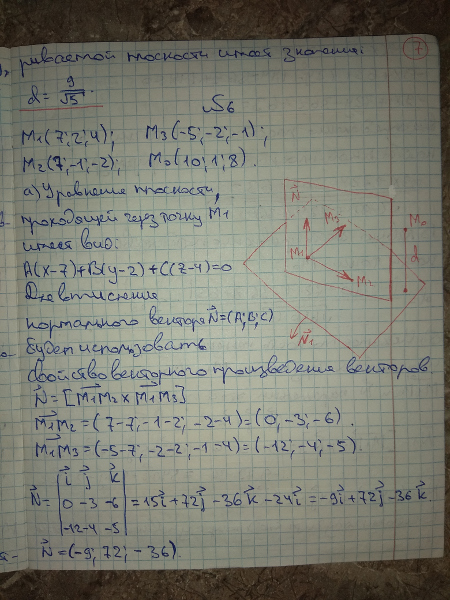 7
риваемой плоскости имеет значения:
d = 9/√5.
№6
M1(7; 2; 4); M3(-5; -2; -1);
M2(7; -1; -2); M0(10; 1; 8).
а) Уравнение плоскости,
проходящей через точку M1
имеет вид:
A(x-7)+B(y-2)+C(z-4)=0
Для вычисления
нормального вектора N⃗=(A; B; C)
будет использовать
свойство векторного произведения векторов.
N⃗ = [M1M2 × M1M3]
M1M2 = (7-7; -1-2; -2-4) = (0; -3; -6).
M1M3 = (-5-7; -2-2; -1-4) = (-12; -4; -5).
i⃗ j⃗ k⃗
N⃗ = |0 -3 -6| = 15i⃗ + 72j⃗ - 36k⃗ - 24i⃗ = -9i⃗ + 72j⃗ - 36k⃗
-12 -4 -5
N⃗ = (-9; 72; -36).
N⃗
M3
M0
M1
d
M2
N⃗1